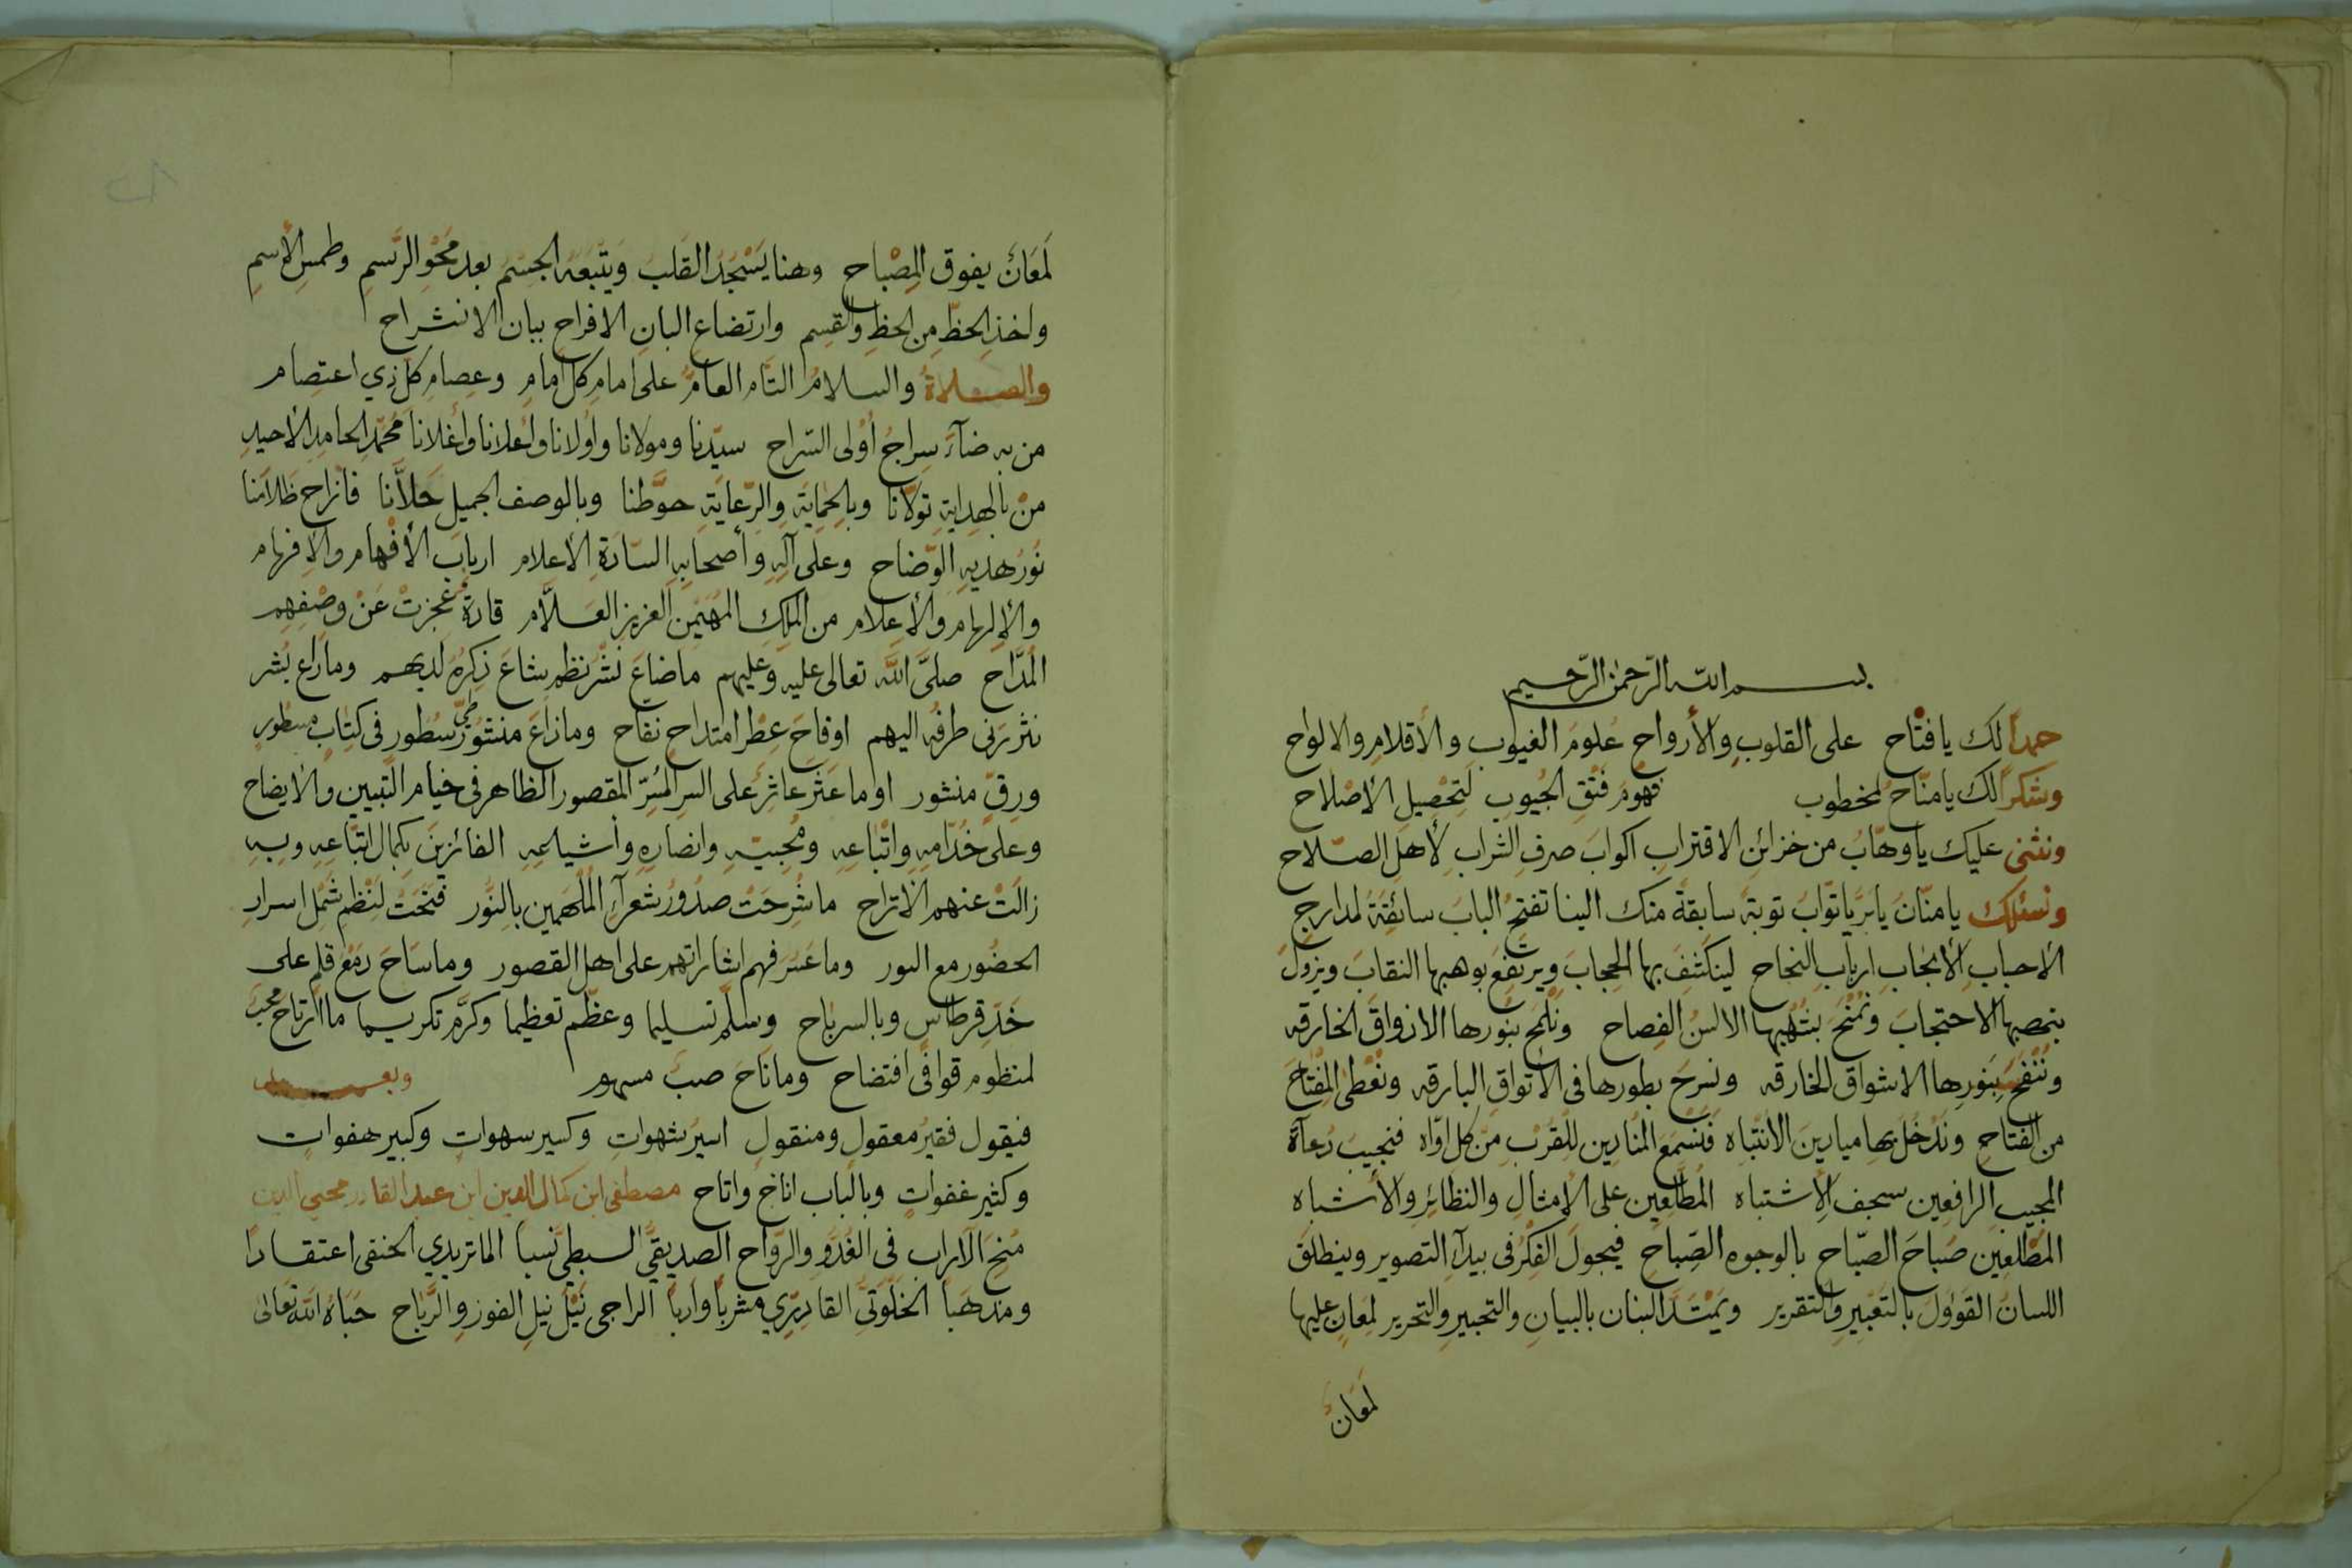 بسم الله الرحمن الرحيم
حمدا لك يا فتاح على القلوب والأرواح علوم الغيوب والأقلام والالواح
وشكرا لك يا مناح لمخطوب فهوم فتق الجيوب لتحصيل الاصلاح
ونثنى عليك يا وهاب من خزائن الاقتراب اكواب صرف الشراب لأهل الصلاح
ونسئلك يا منان يا بر يا تواب توبة سابقة منك الينا تفتح الباب سائقة لمدارج
الاحباب الانجاب ارباب النجاح لينكشف بها الحجاب ويرتفع بوهبها النقاب ويزول
الاحتجاب ونمنح بشهبها الالسن الفصاح ونلمح بنورها الاذواق الخارقه
وننفح بنورها الاشواق الخارقه ونسرح بطورها فى الاتواق البارقه ونعطى المفتاح
من الفتاح وندخل بها ميادين الانتباه فنسمع المنادين للقرب من كل اواه فنجيب دعاة
المجيب الرافعين سجف الاشتباه المطلعين على الامثال والنظائر والأشباه
المطلعين صباح الصباح بالوجوه الصباح فيجول الفكر فى بيدآء التصوير وينطلق
اللسان القوول بالتعبير والتقرير ويمتد البنان بالبيان والتحبير والتحرير لمعان عليها
لمعان
لمعان يفوق المصباح وهنا يسجد القلب ويتبعه الجسم بعد محو الرسم وطمس الأسم
واخذ الحظ من الحظ والقسم وارتضاع البان الافراح ببان الانشراح
والصلاة والسلام التام العام على امام كل امام وعصام كل ذي اعتصام
من به ضآء سراج أولى السراح سيدنا ومولانا واولانا واعلانا واغلانا محمد الحامد الاحيد
من بالهداية تولانا وبالحماية والرعاية حوطنا وبالوصف الجميل حلانا فانزاح ظلامنا
نور هديه الوضاح وعلى آله وأصحابه السادة الاعلام ارباب الأفهام والافهام
والإلهام والاعلام من الملك المهيمن العزيز العلام قادة عجزت عن وصفهم
المداح صلى الله تعالى عليه وعليهم ما ضاع نشر نظم بشاع ذكره لديهم وما راع بشر
نثر برنى طرفه اليهم او فاح عطر امتداح نفاح وما ذاع منثور طي سطور فى كتاب مسطور
ورق منشور او ما عثر عاثر على السر المسر المقصور الظاهر فى خيام التبيين والايضاح
وعلى خدامه واتباعه ومحبيه وانصاره وأشياعه الفائزين بكمال اتباعه وبه
زالت عنهم الاتراح ما شرحت صدور شعرآء الملهمين بالنور فنحت لنظم شمل اسرار
الحضور مع النور وما عسر فهم اشاراتهم على اهل القصور وما ساح دمع قلم على
خد قرطاس وبالسر باح وسلم تسليما وعظم تعظيما وكرم تكريما ما ارتاح محب
لمنظوم قوافى افتضاح وما ناح صب مسهور وبعد
فيقول فقير معقول ومنقول اسير شهوات وكسير سهوات وكبير هفوات
وكثير غفوات وبالباب اناخ واتاح مصطفى ابن كمال الدين ابن عبد القادر محيى الدين
منح الآراب فى الغدو والرواح الصديقى السبطى نسبا الماتريدي الحنفى اعتقادا
ومذهبا الخلوتى القادري مشربا وآربا الراجى نيل نيل الفوز والرباح حباه الله تعالى